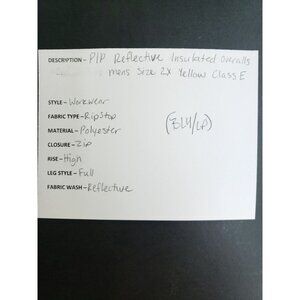 DESCRIPTION - PIP Reflective Insulated Overalls
mens Size 2X Yellow Class E
STYLE - Workwear
FABRIC TYPE - RipStop
MATERIAL - Polyester
CLOSURE - Zip
RISE - High
LEG STYLE - Full
FABRIC WASH - Reflective